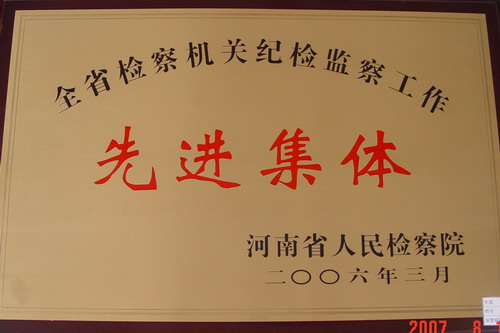 全省检察机关纪检监察工作
先进集体
河南省人民检察院
二〇〇六年三月
2007 8